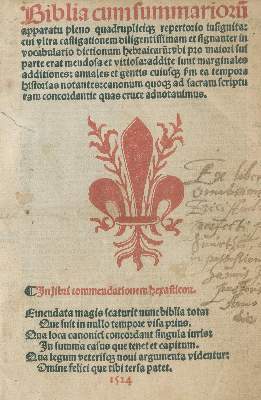 Biblia cum summariorū
apparatu pleno quadrupliciqꝫ repertorio insignita:
cui vltra castigationem diligentissimam et signanter in
vocabulario dictionum hebraicarū: vbi pro maiori sui
parte erat mendosa et vitiosa: addite sunt marginales
additiones: annales et gentis cuiusqꝫ fm ea tempora
historias notantes: canonum quoqꝫ ad sacram scriptu
ram concordantie quas cruce adnotauimus.
In libri commendationem hexasticon.
Emendata magis scaturit nunc biblia tota:
Que fuit in nullo tempore visa prius.
Qua loca canonici concordant singula iuris:
In summa casus que tenet et capitum.
Qua legum veterisqꝫ noui argumenta videntur:
Omine felici que tibi tersa patet.
1514